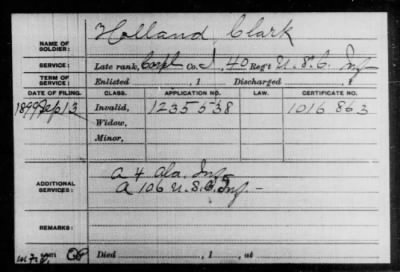 Holland, Clark
NAME OF SOLDIER:
SERVICE: Late rank, Corpl Co. I, 40 Reg't U.S.C. Inf
TERM OF SERVICE: Enlisted , 1 Discharged , 1
DATE OF FILING. CLASS. APPLICATION NO. LAW. CERTIFICATE NO.
1899 Sep 13 Invalid, 1235538 1016863
Widow,
Minor,
ADDITIONAL SERVICES:
A 4 Ala. Inf
A 106 U.S.C. Inf. -
REMARKS:
Died , 1 , at